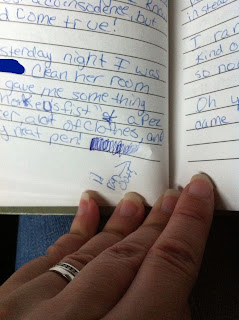 a coinsodence, but
d come true!
sterday night I was
clean her room
gave me something
fist of a Pez
er alot of clothes, and
y neat pen!
instead
I ra
Kind o
so no
Oh y
came